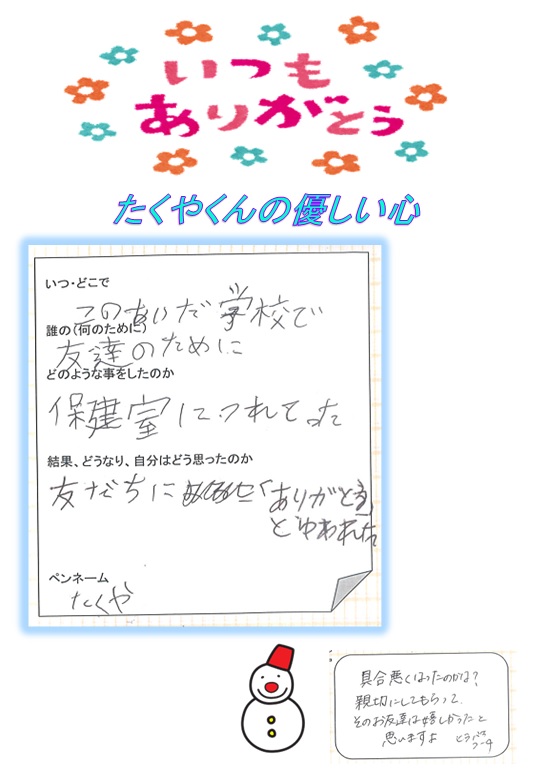 いつも
ありがとう
たくやくんの優しい心
いつ・どこで
このあいだ学校で
誰の(何のために)
友達のために
どのような事をしたのか
保建室につれてった
結果、どうなり、自分はどう思ったのか
友だちに「ありがとう」
とゆわれた
ペンネーム
たくや
具合悪くなったのかな?
親切にしてもらって
そのお友達は嬉しかったと
思いますよ